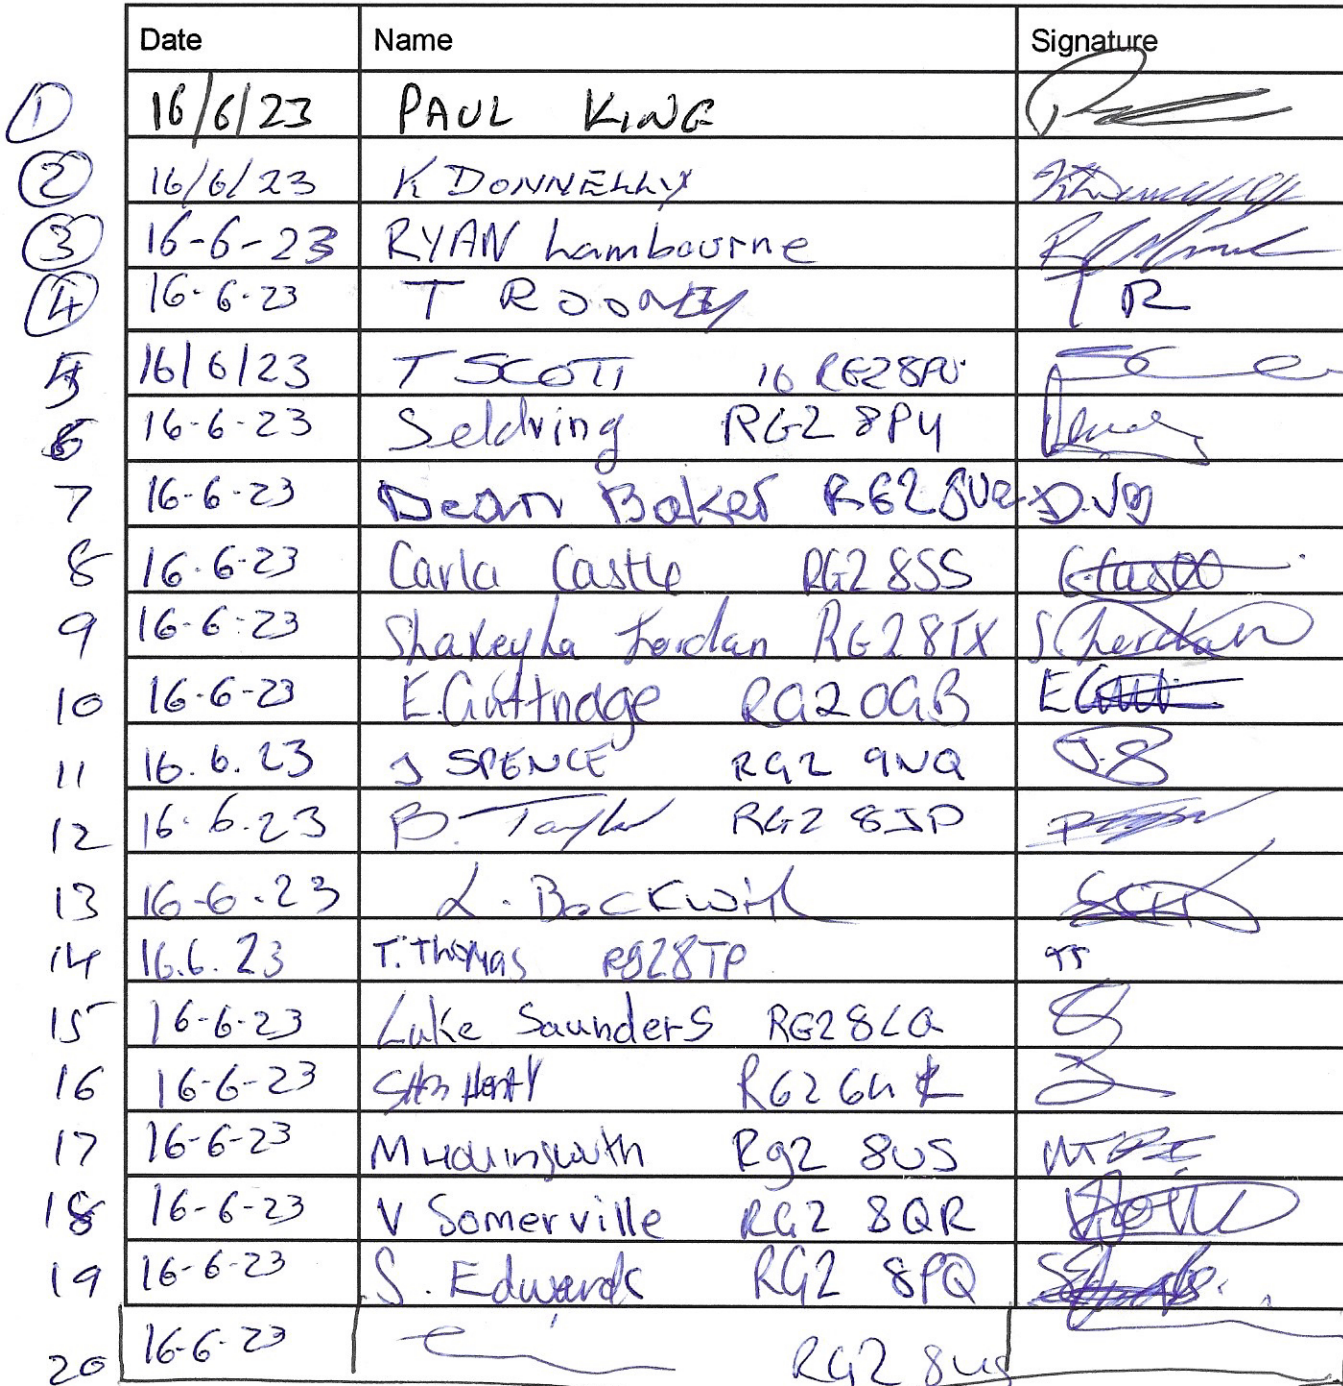 Date Name Signature
1 16/6/23 PAUL KING
2 16/6/23 K DONNELLY
3 16-6-23 RYAN Lambourne
4 16-6-23 T ROONEY T R
5 16/6/23 T SCOTT 16 RG28PU
6 16-6-23 Seldving RG2 8PY
7 16-6-23 Dean Baker RG2 8UE
8 16-6-23 Carla Castle RG2 8SS
9 16-6-23 Shakeyla Jordan RG28TX
10 16-6-23 E.Guttridge RG2 0GB
11 16.6.23 J SPENCE RG2 9NQ J.S
12 16.6.23 B. Taylor RG2 8JP
13 16-6-23 L. Beckwith
14 16.6.23 T. Thomas RG28TP TT
15 16-6-23 Luke Saunders RG28LQ
16 16-6-23 RG2 6H
17 16-6-23 M Hollingworth Rg2 8US
18 16-6-23 V Somerville RG2 8QR
19 16-6-23 S. Edwards RG2 8PQ
20 16-6-23 RG2